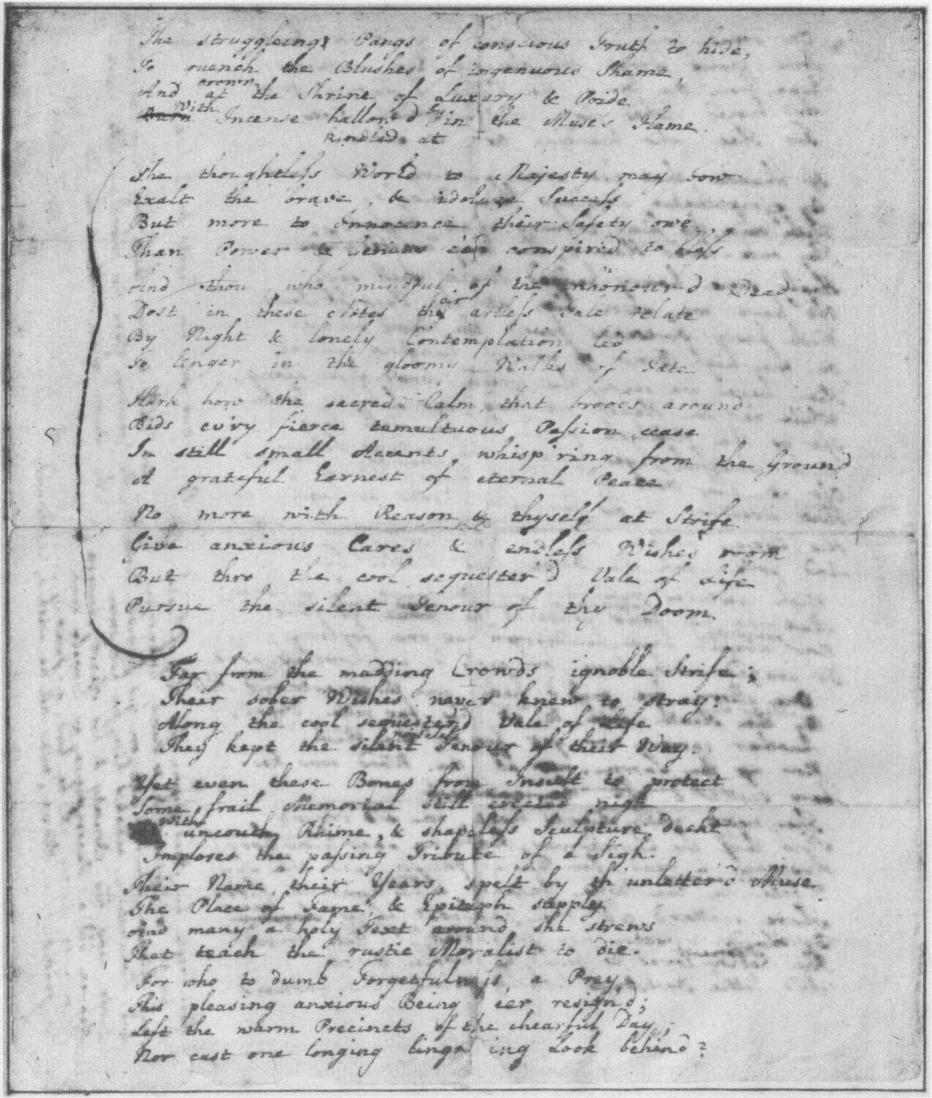 The struggleing Pangs of conscious Truth to hide,
To quench the Blushes of ingenuous Shame,
And at the Shrine of Luxury & Pride
crown
Burn Incense hallow'd in the Muse's Flame.
With by
kindled at
The thoughtless World to Majesty may bow
Exalt the brave, & idolize Success
But more to Innocence their Safety owe
Than Power & Genius e'er conspired to bless
And thou, who mindful of the unhonour'd Dead
Dost in these Notes thy artless Tale relate
eir
By Night & lonely Contemplation led
To linger in the gloomy Walks of Fate
Hark how the sacred Calm, that broods around
Bids ev'ry fierce tumultuous Passion cease
In still small Accents whisp'ring from the Ground
A grateful Earnest of eternal Peace
No more with Reason & thyself at Strife
Give anxious Cares & endless Wishes room
But thro the cool sequester'd Vale of Life
Pursue the silent Tenour of thy Doom.
Far from the madding Crowds ignoble Strife;
Their sober Wishes never knew to stray:
Along the cool sequester'd Vale of Life
noiseless
They kept the silent Tenour of their Way.
Yet even these Bones from Insult to protect
Some frail Memorial still erected nigh
With
uncouth Rhime, & shapeless Sculpture deckt
Implores the passing Tribute of a Sigh.
Their Name, their Years, spelt by th' unletter'd Muse
The Place of Fame, & Epitaph supply
And many a holy Text around she strews
That teach the rustic Moralist to die.
For who to dumb Forgetfulness, a Prey,
This pleasing anxious Being e'er resign'd;
Left the warm Precincts of the chearful Day,
Nor cast one longing ling'ring Look behind?